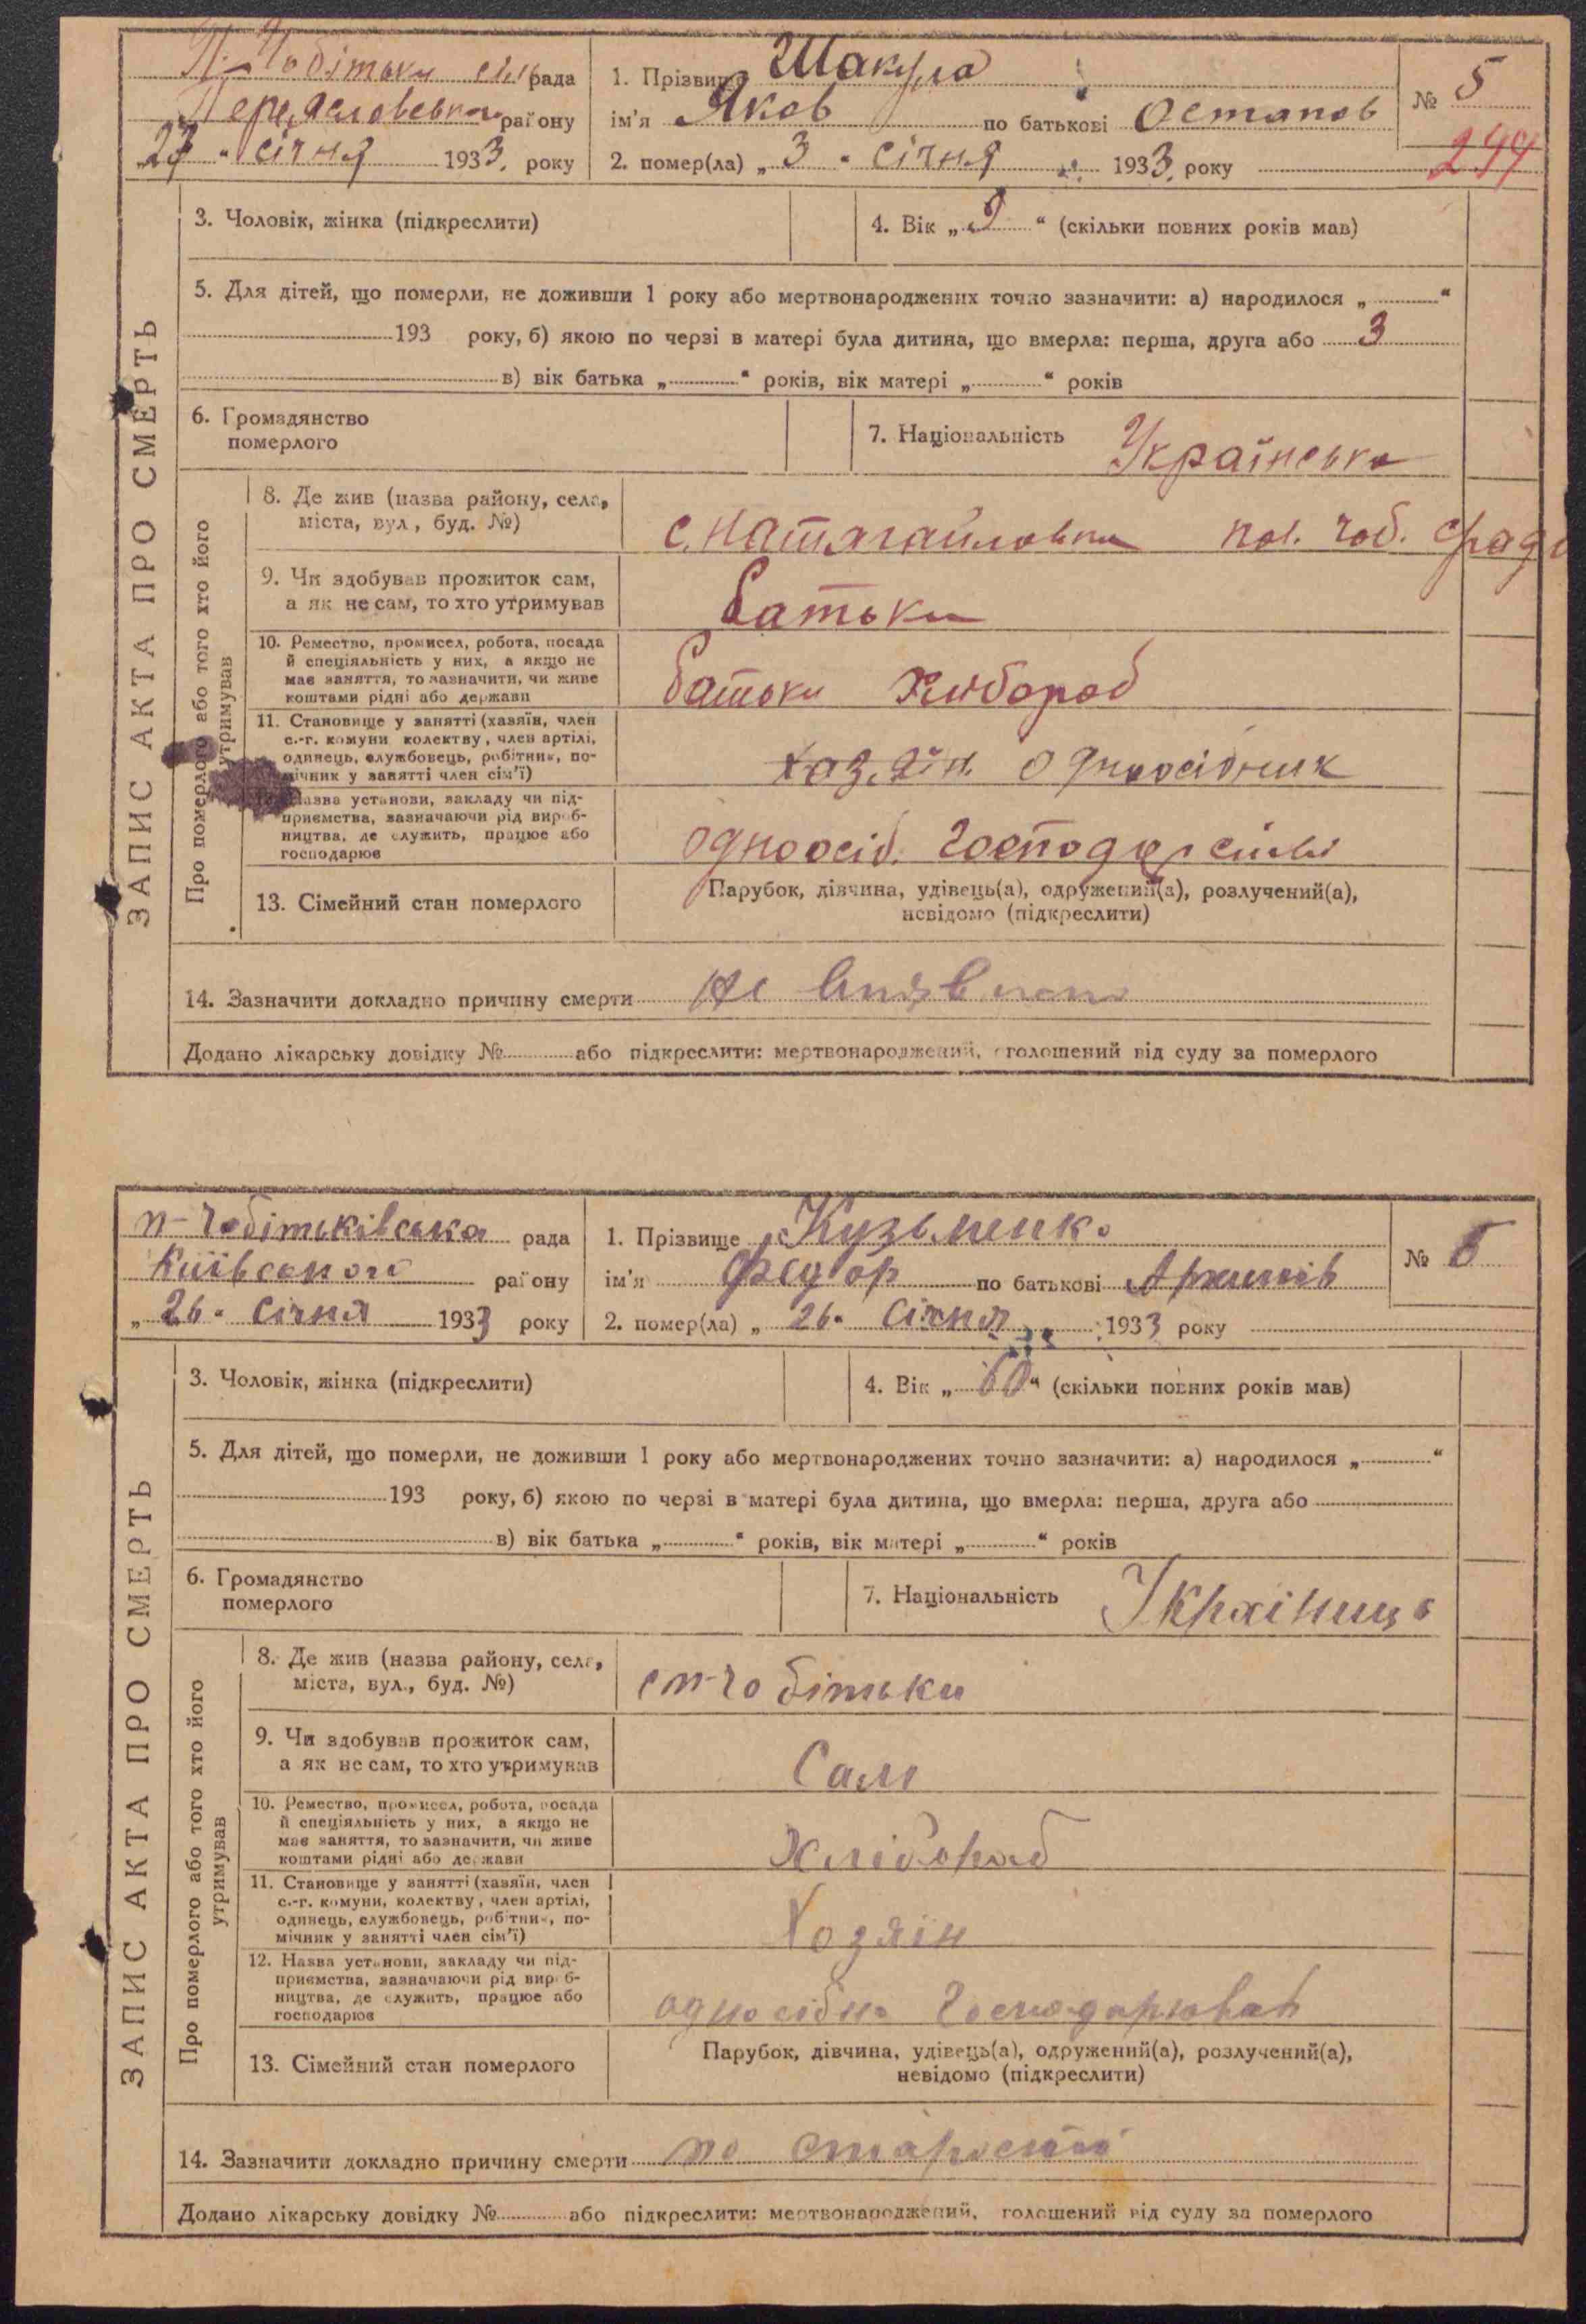 ЗАПИС АКТА ПРО СМЕРТЬ
П. Чобітьки сіль рада
Переяславського району
„27“ січня 1933. року
1. Прізвище Шакула
ім'я Яков по батькові Остапов
2. помер(ла) „3“ січня 1933. року
№ 5
244
3. Чоловік, жінка (підкреслити)
4. Вік „9“ (скільки повних років мав)
5. Для дітей, що померли, не доживши 1 року або мертвонароджених точно зазначити: а) народилося „ “
193 року, б) якою по черзі в матері була дитина, що вмерла: перша, друга або 3
в) вік батька „ “ років, вік матері „ “ років
6. Громадянство
померлого
7. Національність Українська
Про померлого або того хто його
утримував
8. Де жив (назва району, села,
міста, вул., буд. №)
с. Натягайловка пол. чоб. с/ради
9. Чи здобував прожиток сам,
а як не сам, то хто утримував
батьки
10. Ремество, промисел, робота, посада
й спеціяльність у них, а якщо не
має заняття, то зазначити, чи живе
коштами рідні або держави
батьки хлібороб
11. Становище у занятті (хазяїн, член
с.-г. комуни, колектву, член артілі,
одинець, службовець, робітник, по-
мічник у занятті член сім'ї)
хозяїн. одноосібник
12. Назва установи, закладу чи під-
приємства, зазначаючи рід вироб-
ництва, де служить, працює або
господарює
одноосіб. господарстві
13. Сімейний стан померлого
Парубок, дівчина, удівець(а), одружений(а), розлучений(а),
невідомо (підкреслити)
14. Зазначити докладно причину смерти не
Додано лікарську довідку № або підкреслити: мертвонароджений, оголошений від суду за померлого
ЗАПИС АКТА ПРО СМЕРТЬ
п-Чобітьківська рада
Київського району
„26“ січня 1933 року
1. Прізвище Кузьменко
ім'я Федор по батькові
2. помер(ла) „26“ Січня 1933 року
№ 6
3. Чоловік, жінка (підкреслити)
4. Вік „60“ (скільки повних років мав)
5. Для дітей, що померли, не доживши 1 року або мертвонароджених точно зазначити: а) народилося „ “
193 року, б) якою по черзі в матері була дитина, що вмерла: перша, друга або
в) вік батька „ “ років, вік матері „ “ років
6. Громадянство
померлого
7. Національність Українець
Про померлого або того хто його
утримував
8. Де жив (назва району, села,
міста, вул., буд. №)
с п-чобітьки
9. Чи здобував прожиток сам,
а як не сам, то хто утримував
Сам
10. Ремество, промисел, робота, посада
й спеціяльність у них, а якщо не
має заняття, то зазначити, чи живе
коштами рідні або держави
Хлібороб
11. Становище у занятті (хазяїн, член
с.-г. комуни, колектву, член артілі,
одинець, службовець, робітник, по-
мічник у занятті член сім'ї)
Хозяїн
12. Назва установи, закладу чи під-
приємства, зазначаючи рід вироб-
ництва, де служить, працює або
господарює
односібно господарював
13. Сімейний стан померлого
Парубок, дівчина, удівець(а), одружений(а), розлучений(а),
невідомо (підкреслити)
14. Зазначити докладно причину смерти по старости
Додано лікарську довідку № або підкреслити: мертвонароджений, голошений від суду за померлого